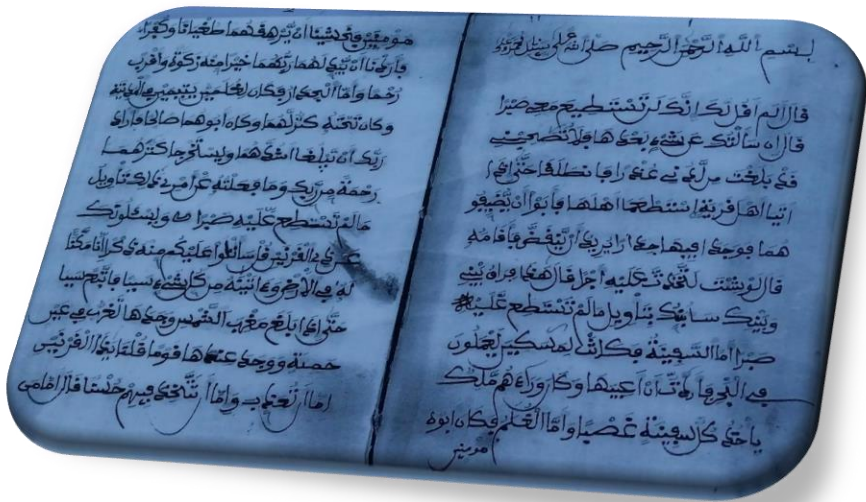 بسم الله الرحمن الرحيم صلى الله على
قال ألم أقل لك إنك لن تستطيع معي صبرا
قال إن سألتك عن شيء بعدها فلا تصحبني
قد بلغت من لدني عذرا فانطلقا حتى إذا
أتيا أهل قرية استطعما أهلها فأبوا أن يضيفو
هما فوجدا فيها جدارا يريد أن ينقض فأقامه
قال لو شئت لتخذت عليه أجرا قال هذا فراق بيني
وبينك سأنبئك بتأويل ما لم تستطع عليه
صبرا أما السفينة فكانت لمسكين يعملون
في البحر فأردت أن أعيبها وكان وراءهم ملك
يأخذ كل سفينة غصبا وأما الغلم فكان أبوه
مومنين
مومنين فخشينا أن يرهقهما طغيانا وكفرا
فأردنا أن يبدلهما ربهما خيرا منه زكوة وأقرب
رحما وأما الجدار فكان لغلمين يتيمين في المدينة
وكان تحته كنز لهما وكان أبوهما صالحا فأراد
ربك أن يبلغا أشدهما ويستخرجا كنزهما
رحمة من ربك وما فعلته عن أمري ذلك تأويل
ما لم تستطع عليه صبرا ويسئلونك
عن ذي القرنين قل سأتلوا عليكم منه ذكرا إنا مكنا
له في الأرض وءاتينه من كل شيء سببا فاتبع سببا
حتى إذا بلغ مغرب الشمس وجدها تغرب في عين
حمئة ووجد عندها قوما قلنا يذا القرنين
إما أن تعذب وإما أن تتخذ فيهم حسنا قال أما من